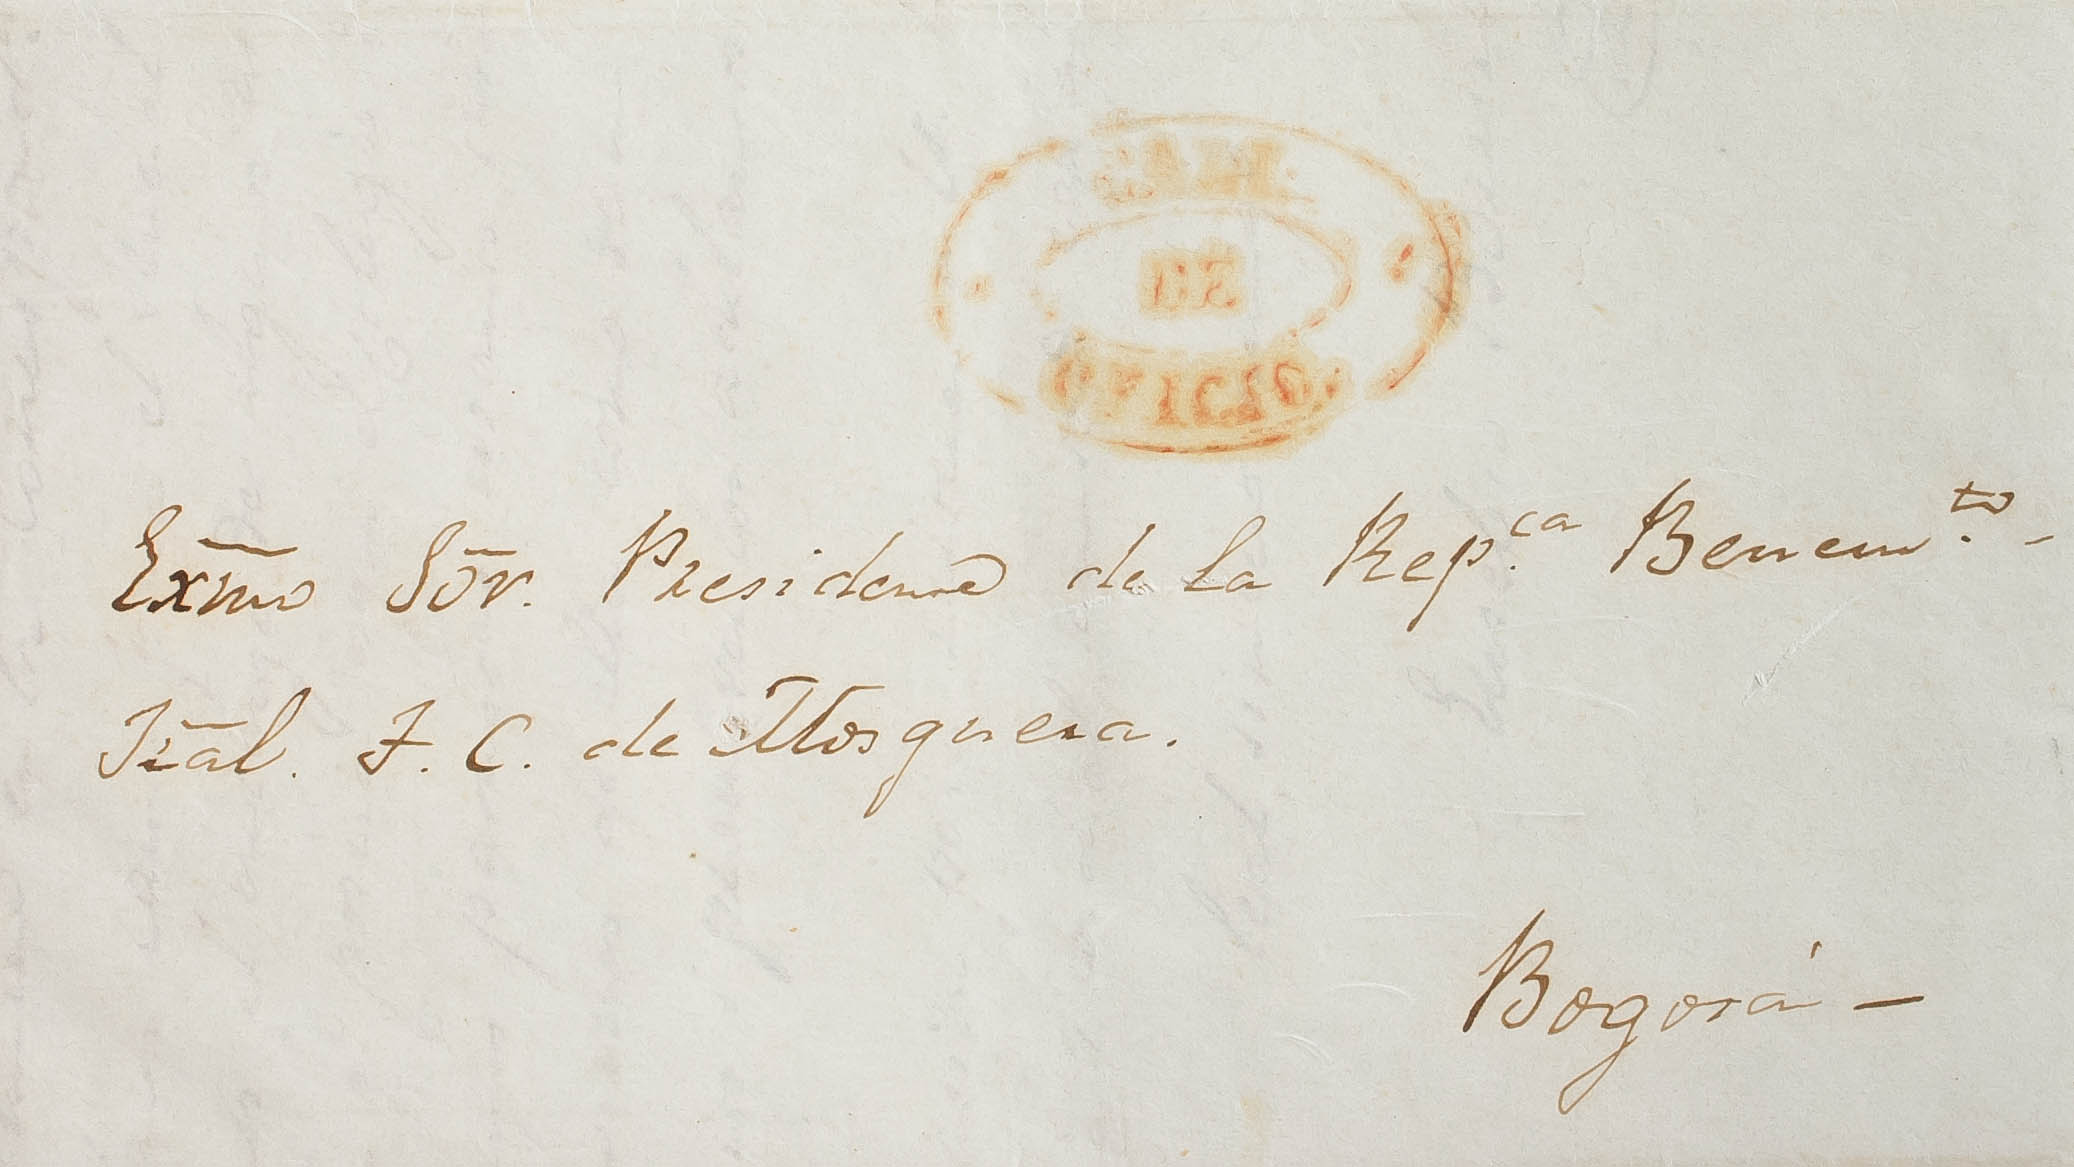 CALI
DE
OFICIO.
Exm̃o Sõr. Presidente de la Rep.ca Benem.to -
Jr̃al. T. C. de Mosquera.
Bogotá -